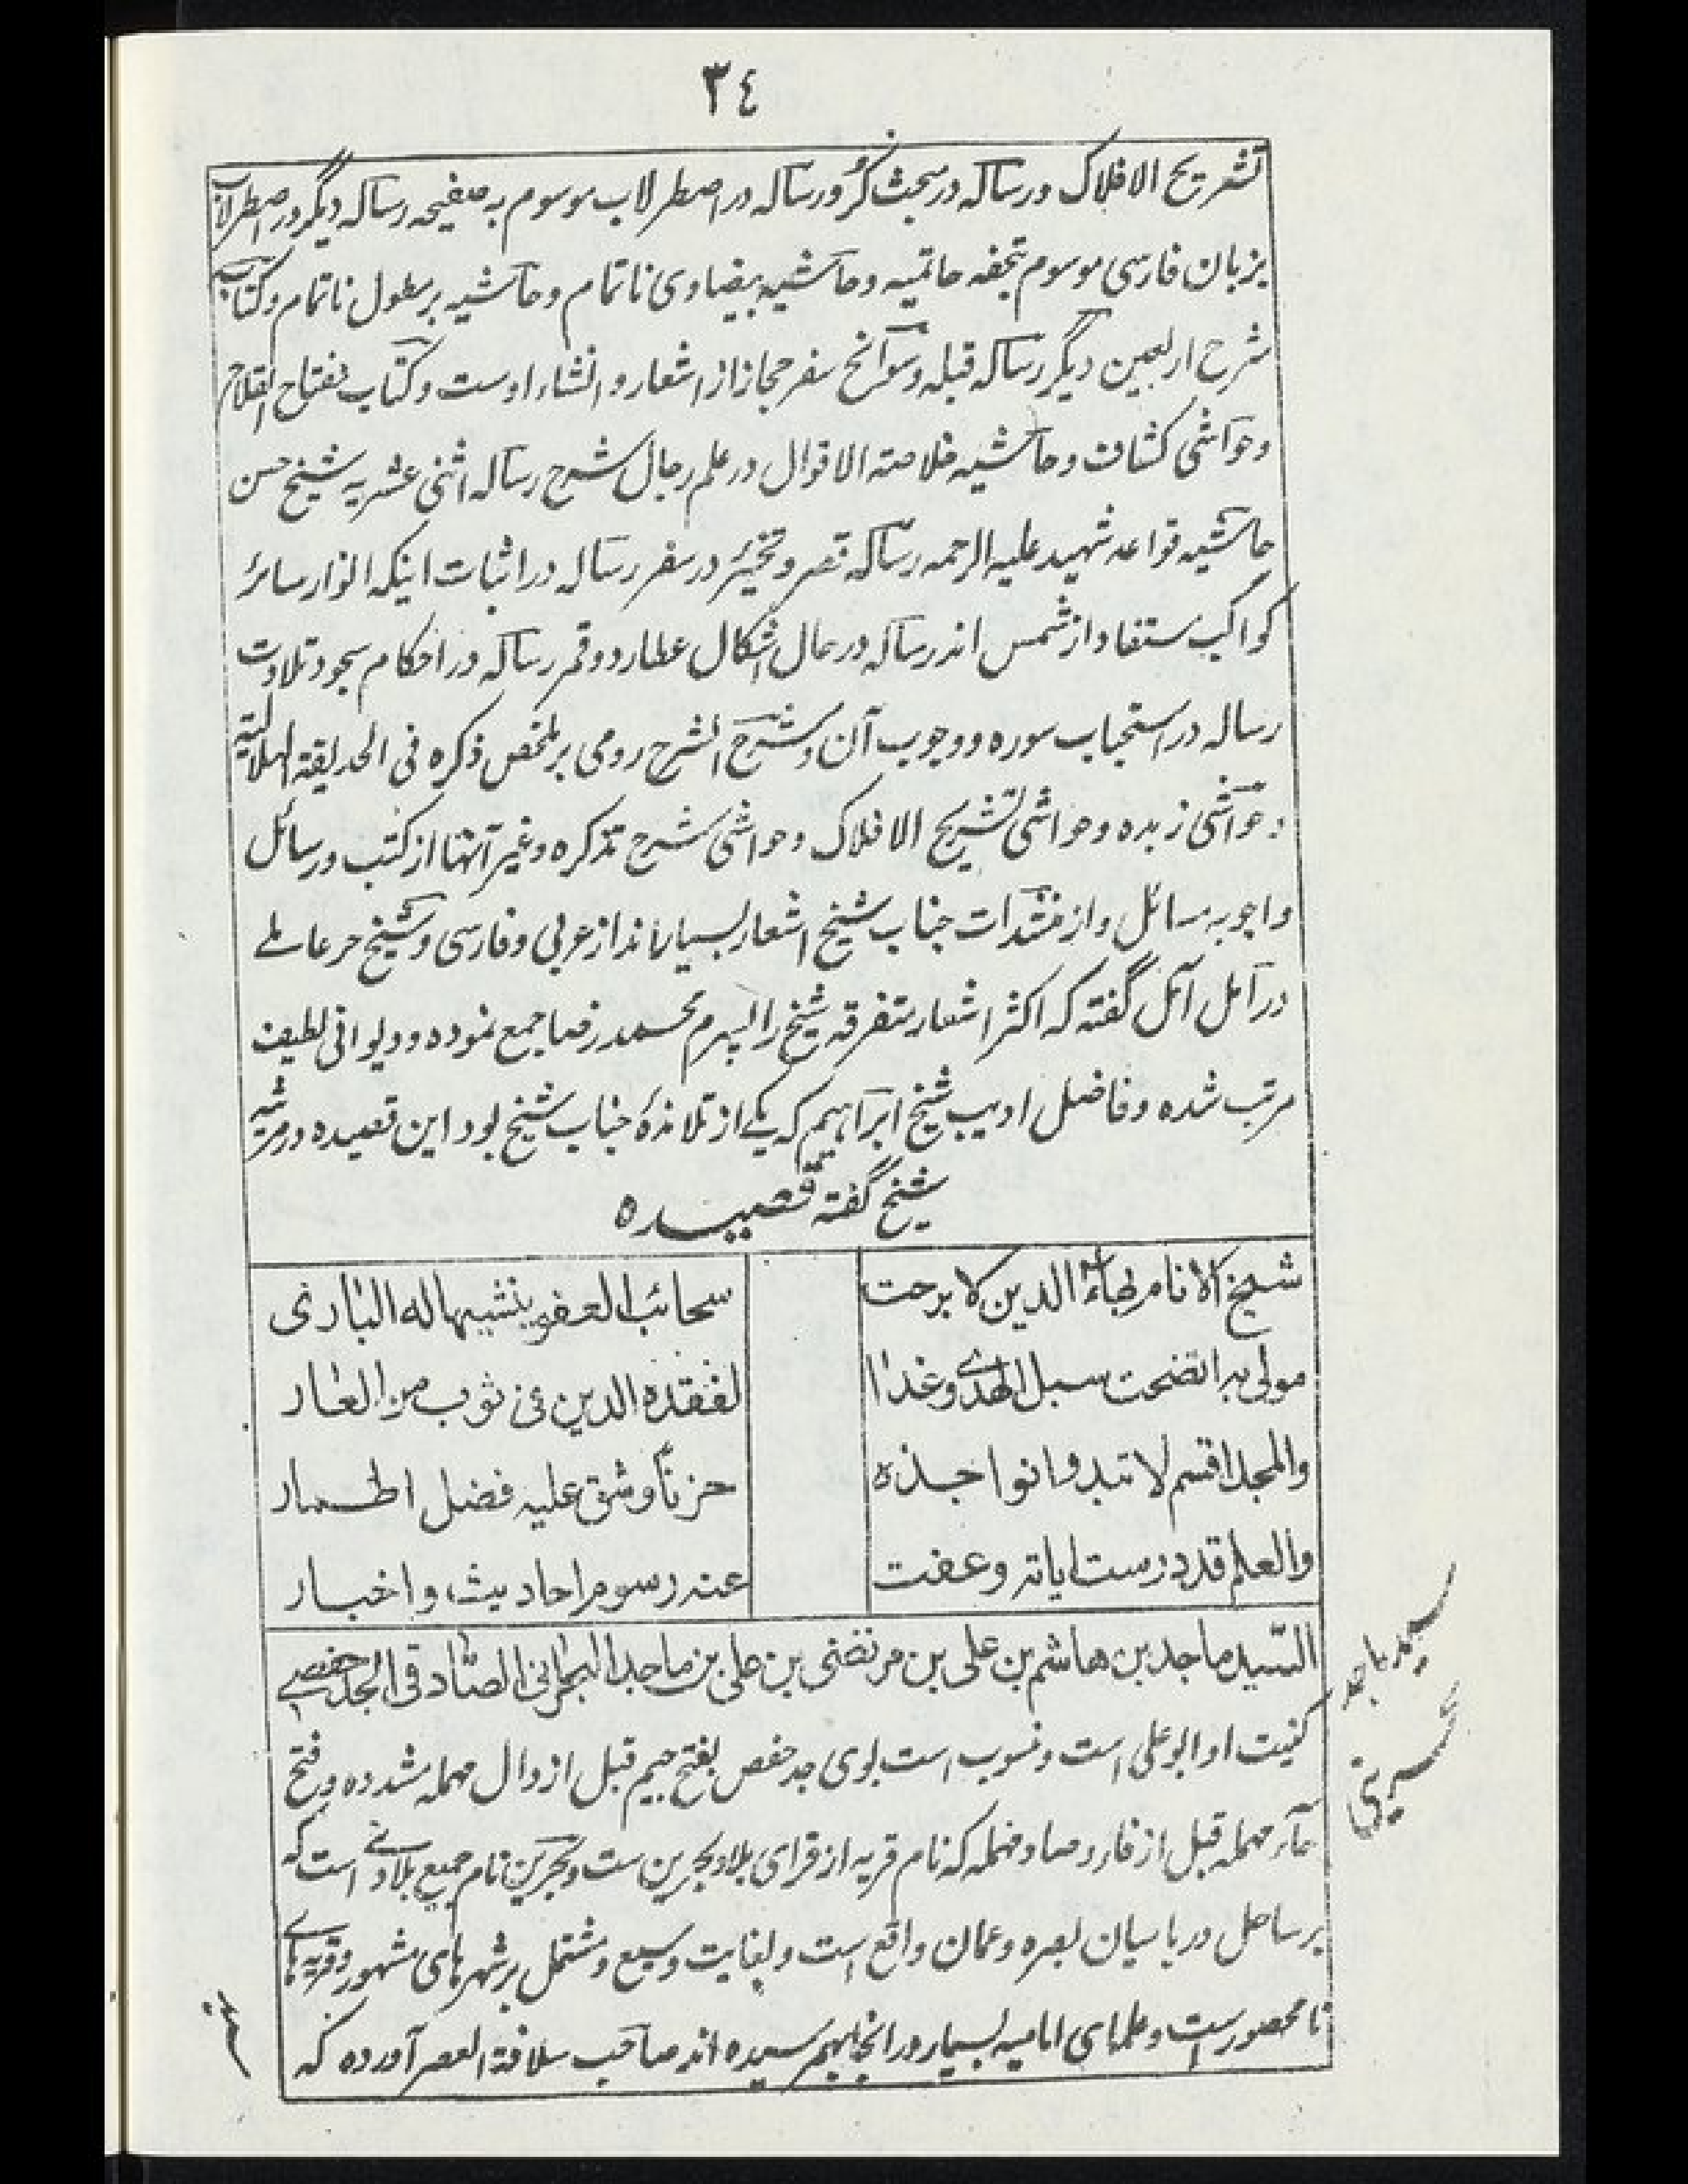 ٣٤
تشریح الافلاک ورساله در مبحث کر ورساله در اصطرلاب موسوم به صفیحه رساله دیگر در اصطرلاب
بزبان فارسی موسوم بتحفه حاتمیه وحاشیه بیضاوی ناتمام وحاشیه بر مطول ناتمام وکتاب
شرح اربعین دیگر رساله قبله وسوانح سفر حجاز از اشعار و انشاء اوست وکتاب مفتاح الفلاح
وحواشی کشاف وحاشیه خلاصته الاقوال در علم رجال شرح رساله اثنی عشریه شیخ حسن
حاشیه قواعد شهید علیه الرحمه رساله قصر وتخییر در سفر رساله در اثبات اینکه انوار سائر
کواکب مستفاد از شمس اند رساله در حال اشکال عطارد وقمر رساله در احکام سجود تلاوت
رساله در استحباب سوره ووجوب آن وشرح الشرح رومی بر ملخص ذکره فی الحدیقته الهلالیته
وحواشی زبده وحواشی تشریح الافلاک وحواشی شرح تذکره وغیر آنها از کتب ورسائل
واجوبه مسائل واز منشدات جناب شیخ اشعار بسیار اند از عربی وفارسی وشیخ حر عاملے
در امل آمل گفته که اکثر اشعار متفرقه شیخ را پسرم محمد رضا جمع نموده ودیوانی لطیف
مرتب شده وفاضل ادیب شیخ ابراهیم که یکے از تلامذهٔ جناب شیخ بود این قصیده در مرثیه
شیخ گفته قصیده
شیخ الانام بهاء الدین لا برحت
سحائب العفو ینشیها له الباری
مولی به اتضحت سبل الهدی وغدا
لفقده الدین فی ثوب من العار
والمجد اقسم لا تبدو نواجذه
حزناً وشق علیه فضل اطمار
والعلم قد درست ایاته وعفت
عنه رسوم احادیث واخبار
السّید ماجد بن هاشم بن علی بن مرتضی بن علی بن ماجد البحرانی الصّادقی الجدحفصے
کنیت او ابوعلی است ومنسوب است بوی جدحفص بفتح جیم قبل از دال مهمله مشدده وفتح
حاء مهمله قبل از فاء وصاد مهمله که نام قریه از قرای بلاد بحرین ست وبحرین نام جمیع بلادے است که
بر ساحل دریا میان بصره وعمان واقع است وبغایت وسیع ومشتمل بر شهرهای مشهور وقریه هاے
نامحصور است وعلمای امامیه بسیار در انجا بهم رسیده اند صاحب سلافة العصر آورده که
سید ماجد
بحرینی